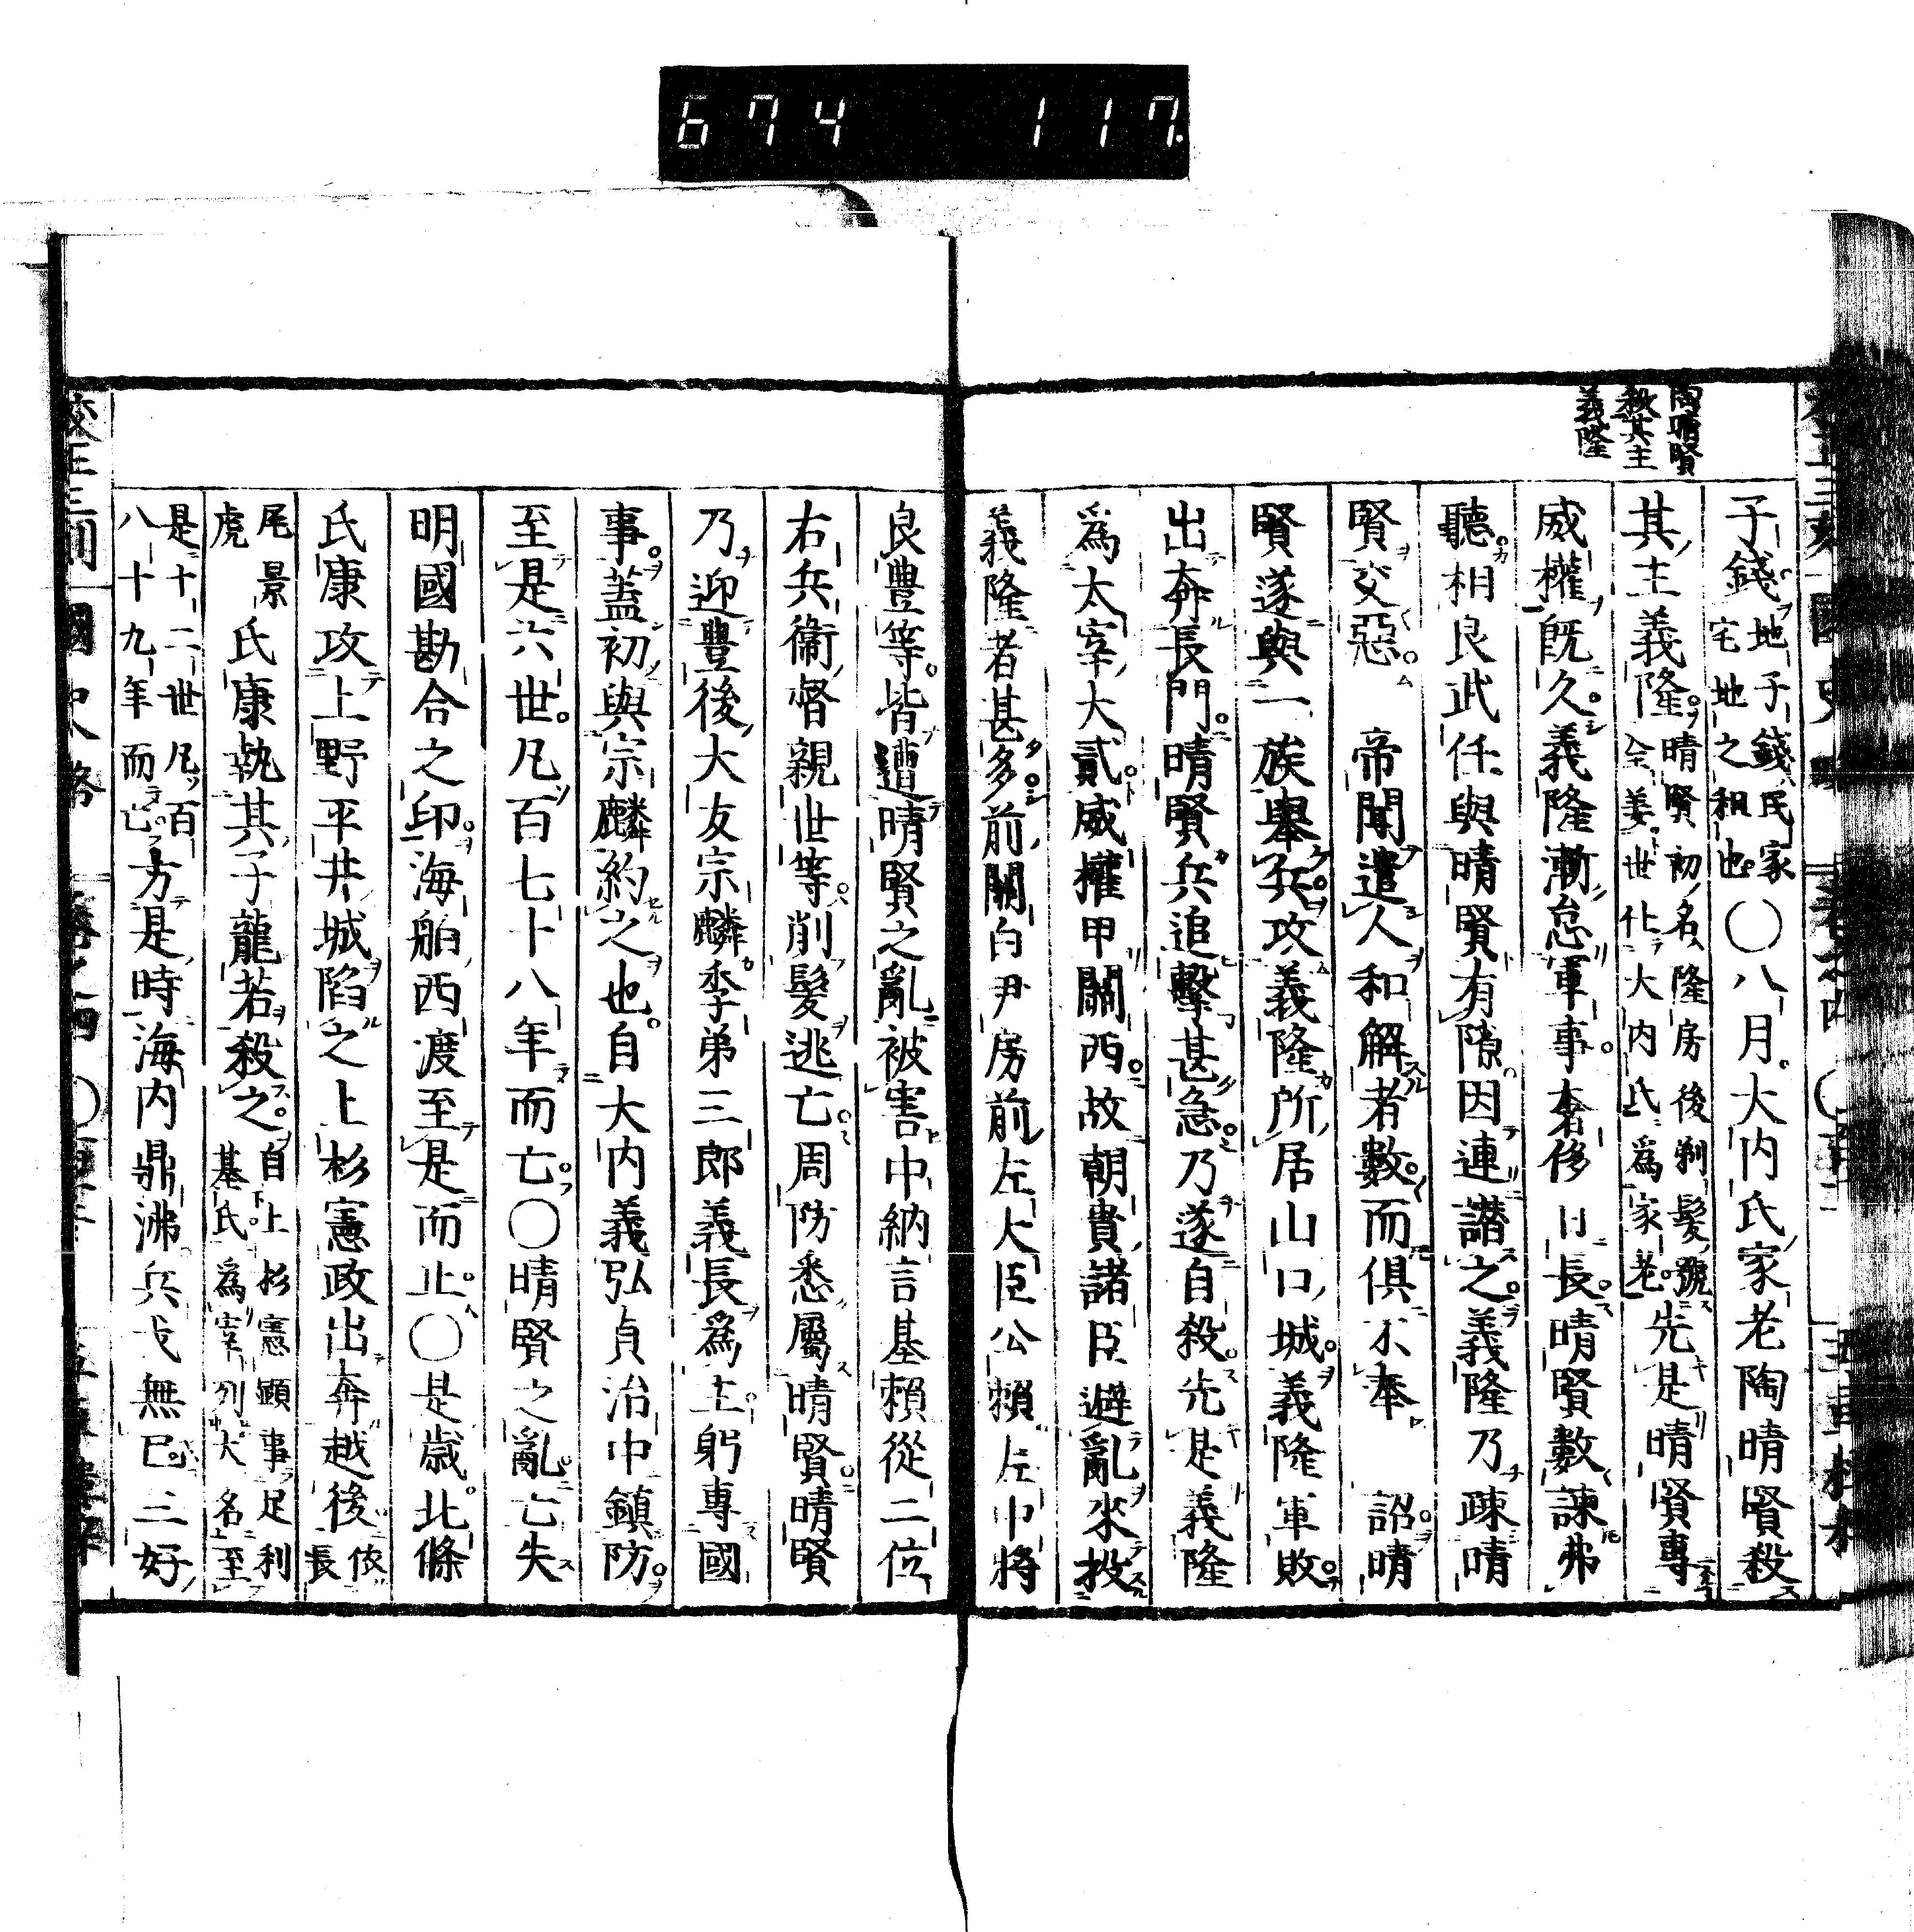 674 117.
陶晴賢
殺其主
義隆
子錢地子錢民家宅地之租也〇八月大内氏家老陶晴賢殺
其主義隆晴賢初名隆房後剃髪號全姜世仕大内氏爲家老先是晴賢專
威權既久義隆漸怠軍事奢侈日長晴賢數諫弗
聽相良武任與晴賢有隙因連譖之義隆乃疎晴
賢交惡 帝聞遣人和解者數而俱不奉 詔晴
賢遂與一族擧兵攻義隆所居山口城義隆軍敗
出奔長門晴賢兵追擊甚急乃遂自殺先是義隆
爲太宰大貳威權甲關西故朝貴諸臣避亂來投
義隆者甚多前關白尹房前左大臣公賴左中將
良豊等皆遭晴賢之亂被害中納言基賴從二位
右兵衞督親世等削髮逃亡周防悉屬晴賢晴賢
乃迎豐後大友宗麟季弟三郎義長爲主躬專國
事蓋初與宗麟約之也自大内義弘貞治中鎭防
至是六世凡百七十八年而亡〇晴賢之亂亡失
明國勘合之印海舶西渡至是而止〇是歳北條
氏康攻上野平井城陷之上杉憲政出奔越後依長
尾景虎氏康執其子龍若殺之自上杉憲顯事足利基氏爲宰列大名至
是十二世凡百八十九年而亡方是時海内鼎沸兵戈無已三好